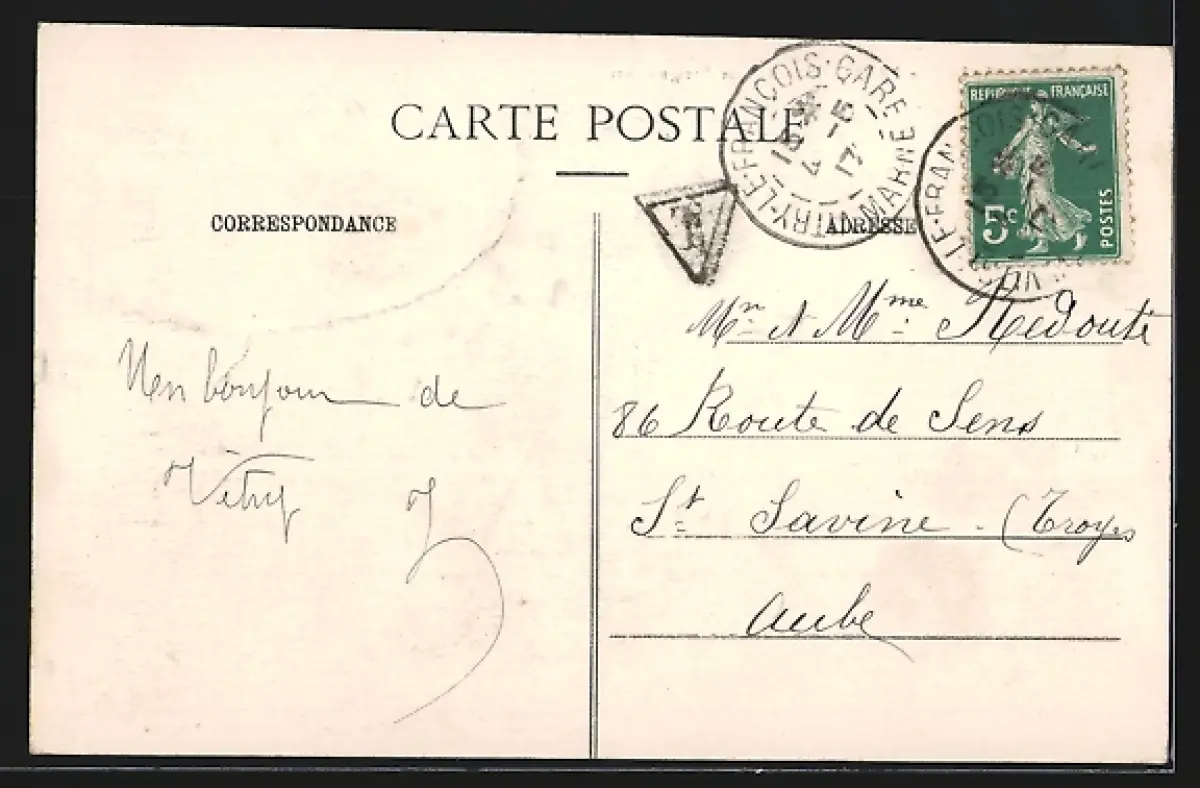 CARTE POSTALE
CORRESPONDANCE
ADRESSE
VITRY-LE-FRANÇOIS-GARE
MARNE
RÉPUBLIQUE FRANÇAISE
5c
POSTES
T
LE-FRAN
Un bonjour de
Vitry
Mr et Mme Redouté
86 Route de Sens
St Savine - (Troyes
Aube